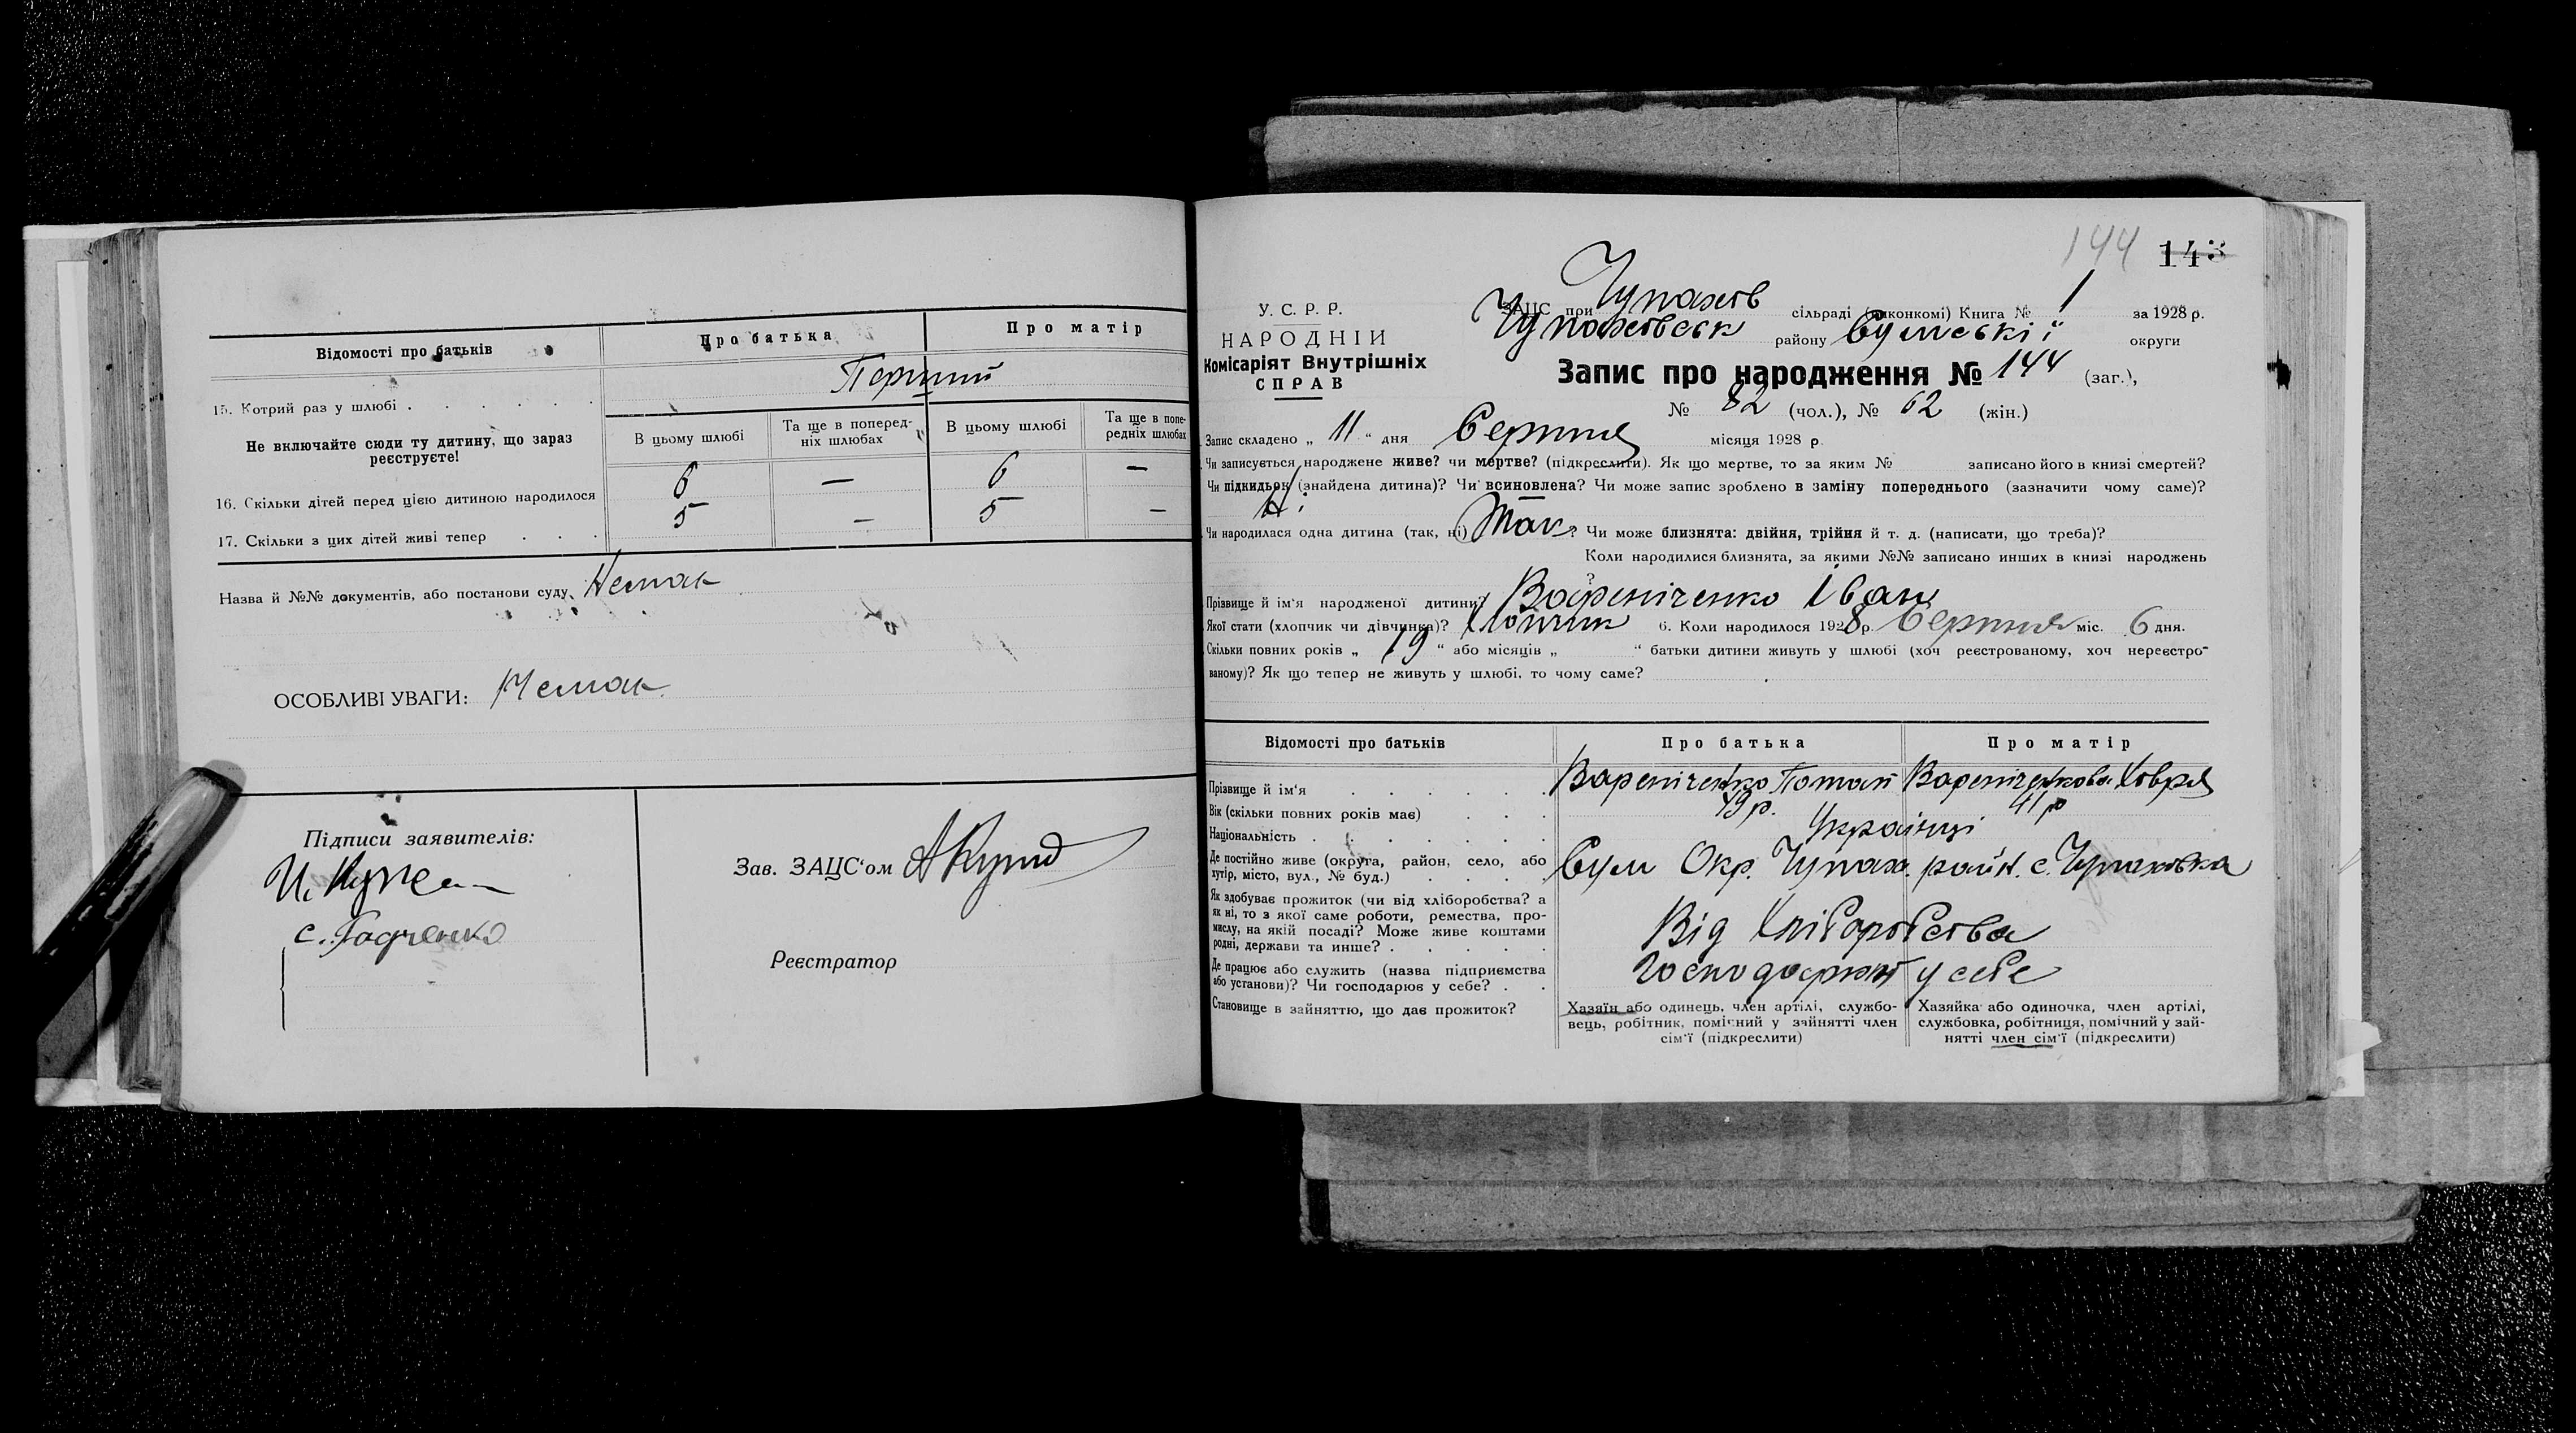 Відомості про батьків
Про батька
Про матір
15. Котрий раз у шлюбі
Перший
Не включайте сюди ту дитину, що зараз реєструєте!
В цьому шлюбі
Та ще в поперед-
ніх шлюбах
В цьому шлюбі
Та ще в попе-
редніх шлюбах
16. Скільки дітей перед цією дитиною народилося 6 — 6 —
17. Скільки з цих дітей живі тепер 5 — 5 —
Назва й №№ документів, або постанови суду Немає
ОСОБЛИВІ УВАГИ: Немає
Підписи заявителів:
Зав. ЗАЦС‘ом
Реєстратор
144 143
У. С. Р. Р.
НАРОДНІЙ
Комісаріят Внутрішніх
СПРАВ
ЗАЦС при Чупахів сільраді (виконкомі) Книга № 1 за 1928 р.
Чупахівськ району Сумської округи
Запис про народження № 144 (заг.),
№ 82 (чол.), № 62 (жін.)
Запис складено „ 11 “ дня Серпня місяця 1928 р.
Чи записується народжене живе? чи мертве? (підкреслити). Як що мертве, то за яким № записано його в книзі смертей?
Чи підкидьок (знайдена дитина)? Чи всиновлена? Чи може запис зроблено в заміну попереднього (зазначити чому саме)?
Ні
Чи народилася одна дитина (так, ні) Так? Чи може близнята: двійня, трійня й т. д. (написати, що треба)?
Коли народилися близнята, за якими №№ записано инших в книзі народжень
?
Прізвище й ім‘я народженої дитини? Вареніченко Іван
Якої стати (хлопчик чи дівчинка)? Хлопчик 6. Коли народилося 1928 р. Серпня міс. 6 дня.
Скільки повних років „ 19 “ або місяців „ “ батьки дитини живуть у шлюбі (хоч реєстрованому, хоч нереєстро-
ваному)? Як що тепер не живуть у шлюбі, то чому саме?
Відомості про батьків
Про батька
Про матір
Прізвище й ім‘я Вареніченко Потап Вареніченкова Хівря
Вік (скільки повних років має) р. 41 р
Національність Українці
Де постійно живе (округа, район, село, або
хутір, місто, вул., № буд.) Сум Окр. Чупах. райн. с. Чупахівка
Як здобуває прожиток (чи від хліборобства? а
як ні, то з якої саме роботи, ремества, про-
мислу, на якій посаді? Може живе коштами
родні, держави та инше?
Від Хліборобства
Де працює або служить (назва підприємства
або установи)? Чи господарює у себе?
Господарюют у себе
Становище в зайняттю, що дає прожиток?
Хазяїн або одинець, член артілі, службо-
вець, робітник, помічний у зайнятті член
сім‘ї (підкреслити)
Хазяйка або одиночка, член артілі,
службовка, робітниця, помічний у зай-
нятті член сім‘ї (підкреслити)